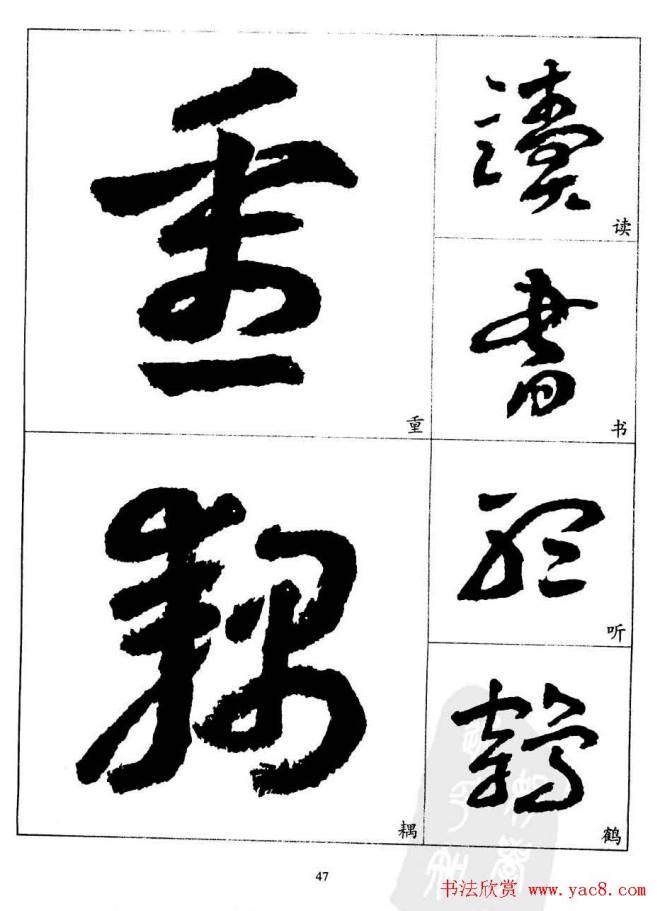 重
重
耦
耦
讀
读
書
书
聽
听
鶴
鹤
47
书法欣赏 www.yac8.com